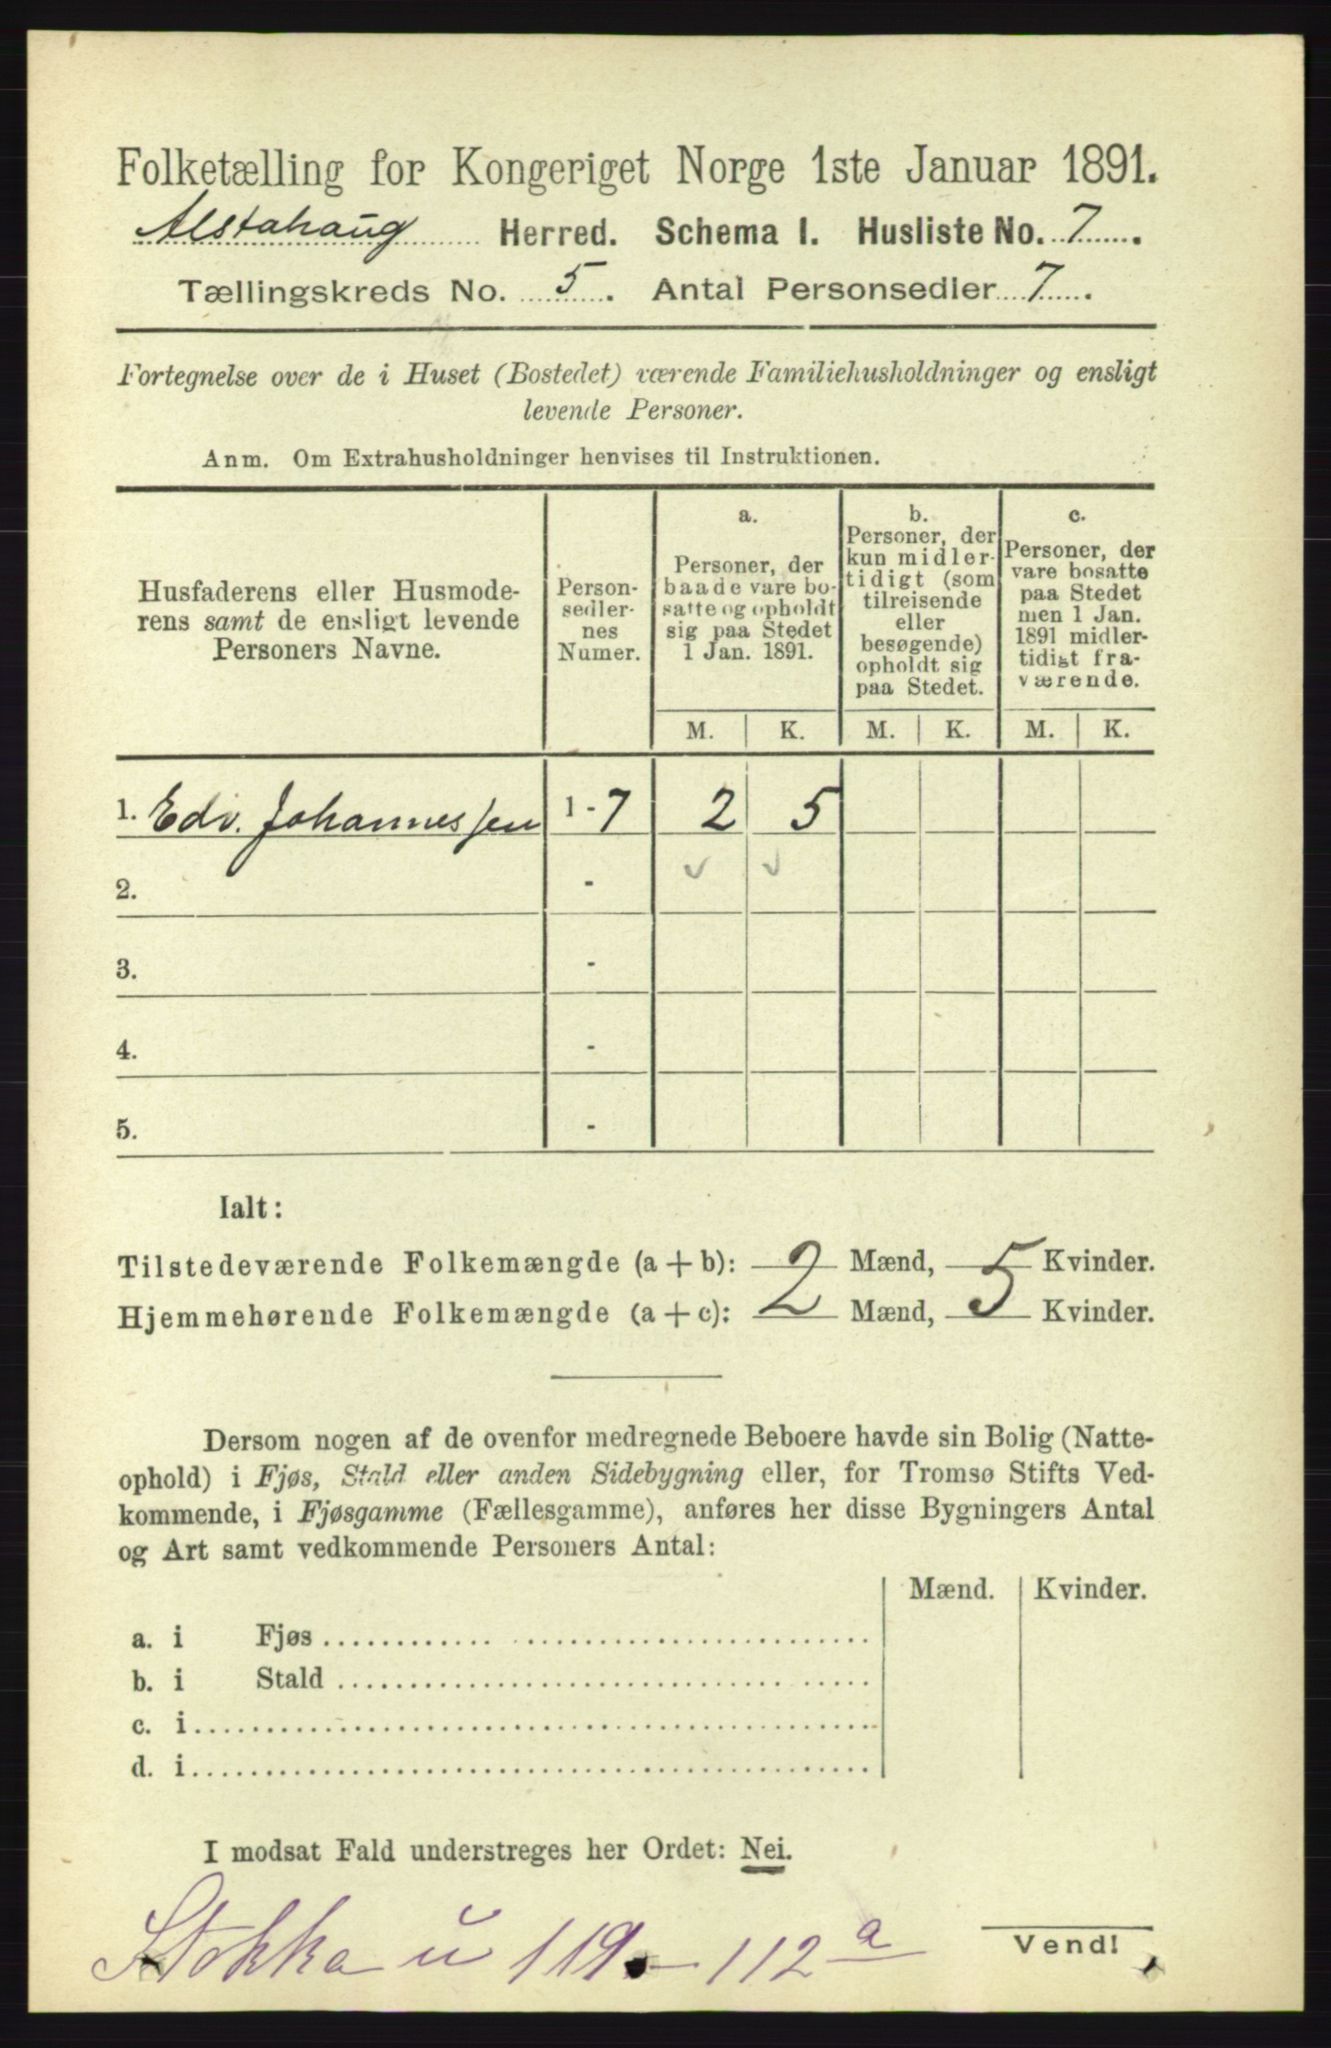 Folketælling for Kongeriget Norge 1ste Januar 1891.
Alstahaug Herred. Schema I. Husliste No. 7.
Tællingskreds No. 5. Antal Personsedler 7.
Fortegnelse over de i Huset (Bostedet) værende Familiehusholdninger og ensligt
levende Personer.
Anm. Om Extrahusholdninger henvises til Instruktionen.
Husfaderens eller Husmode-
rens samt de ensligt levende
Personers Navne.
Person-
sedler-
nes
Numer.
a.
Personer, der
baade vare bo-
satte og opholdt
sig paa Stedet
1 Jan. 1891.
b.
Personer, der
kun midler-
tidigt (som
tilreisende
eller
besøgende)
opholdt sig
paa Stedet.
c.
Personer, der
vare bosatte
paa Stedet
men 1 Jan.
1891 midler-
tidigt fra-
værende.
M. K. M. K. M. K.
1. Edv. Johannessen 1-7 2 5
2. -
3. -
4. -
5. -
Ialt:
Tilstedeværende Folkemængde (a + b): 2 Mænd, 5 Kvinder.
Hjemmehørende Folkemængde (a + c): 2 Mænd, 5 Kvinder.
Dersom nogen af de ovenfor medregnede Beboere havde sin Bolig (Natte-
ophold) i Fjøs, Stald eller anden Sidebygning eller, for Tromsø Stifts Ved-
kommende, i Fjøsgamme (Fællesgamme), anføres her disse Bygningers Antal
og Art samt vedkommende Personers Antal:
Mænd. Kvinder.
a. i Fjøs
b. i Stald
c. i
d. i
I modsat Fald understreges her Ordet: Nei.
Stokka u 119 - 112 a
Vend!